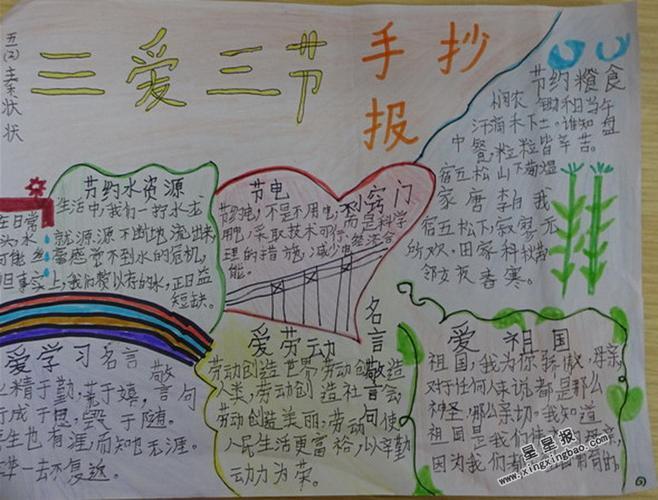 三爱三节
手抄
报
五(2)
节约粮食
悯农 锄禾日当午
汗滴禾下土。谁知盘
中餐粒粒皆辛苦。
宿五松山下荀媪
家 唐 李白 我
宿五松下寂寥无
所欢。田家秋
邻女夜舂寒。
节约水资源
生活中,我们一拧水龙
在日常
头,水 就源源不断地流出来,
可能 常感觉不到水的危机,
但事实上,我们赖以存的水,正日益
短缺。
节电 小窍门
节约电,不是不用电,而是科学
用电,采取技术可行 经济合
理的措施,减少电
能。
爱学习名言
敬言句
精于勤,荒于嬉,
行成于思,毁于随。
生也有涯,而知也无涯。
一去不复返
爱劳动 名言
敬言句
劳动创造世界,劳动创造
人类,劳动创造社会,
劳动创造美丽;劳动使
人民生活更富裕,以辛勤
动力为荣。
爱祖国
祖国,我为你骄傲,母亲
对于任何人来说都是那么
神圣,那么亲切。我知道
祖国是我们
因为我们都 国育育的。
星星报
www.xingxingbao.com